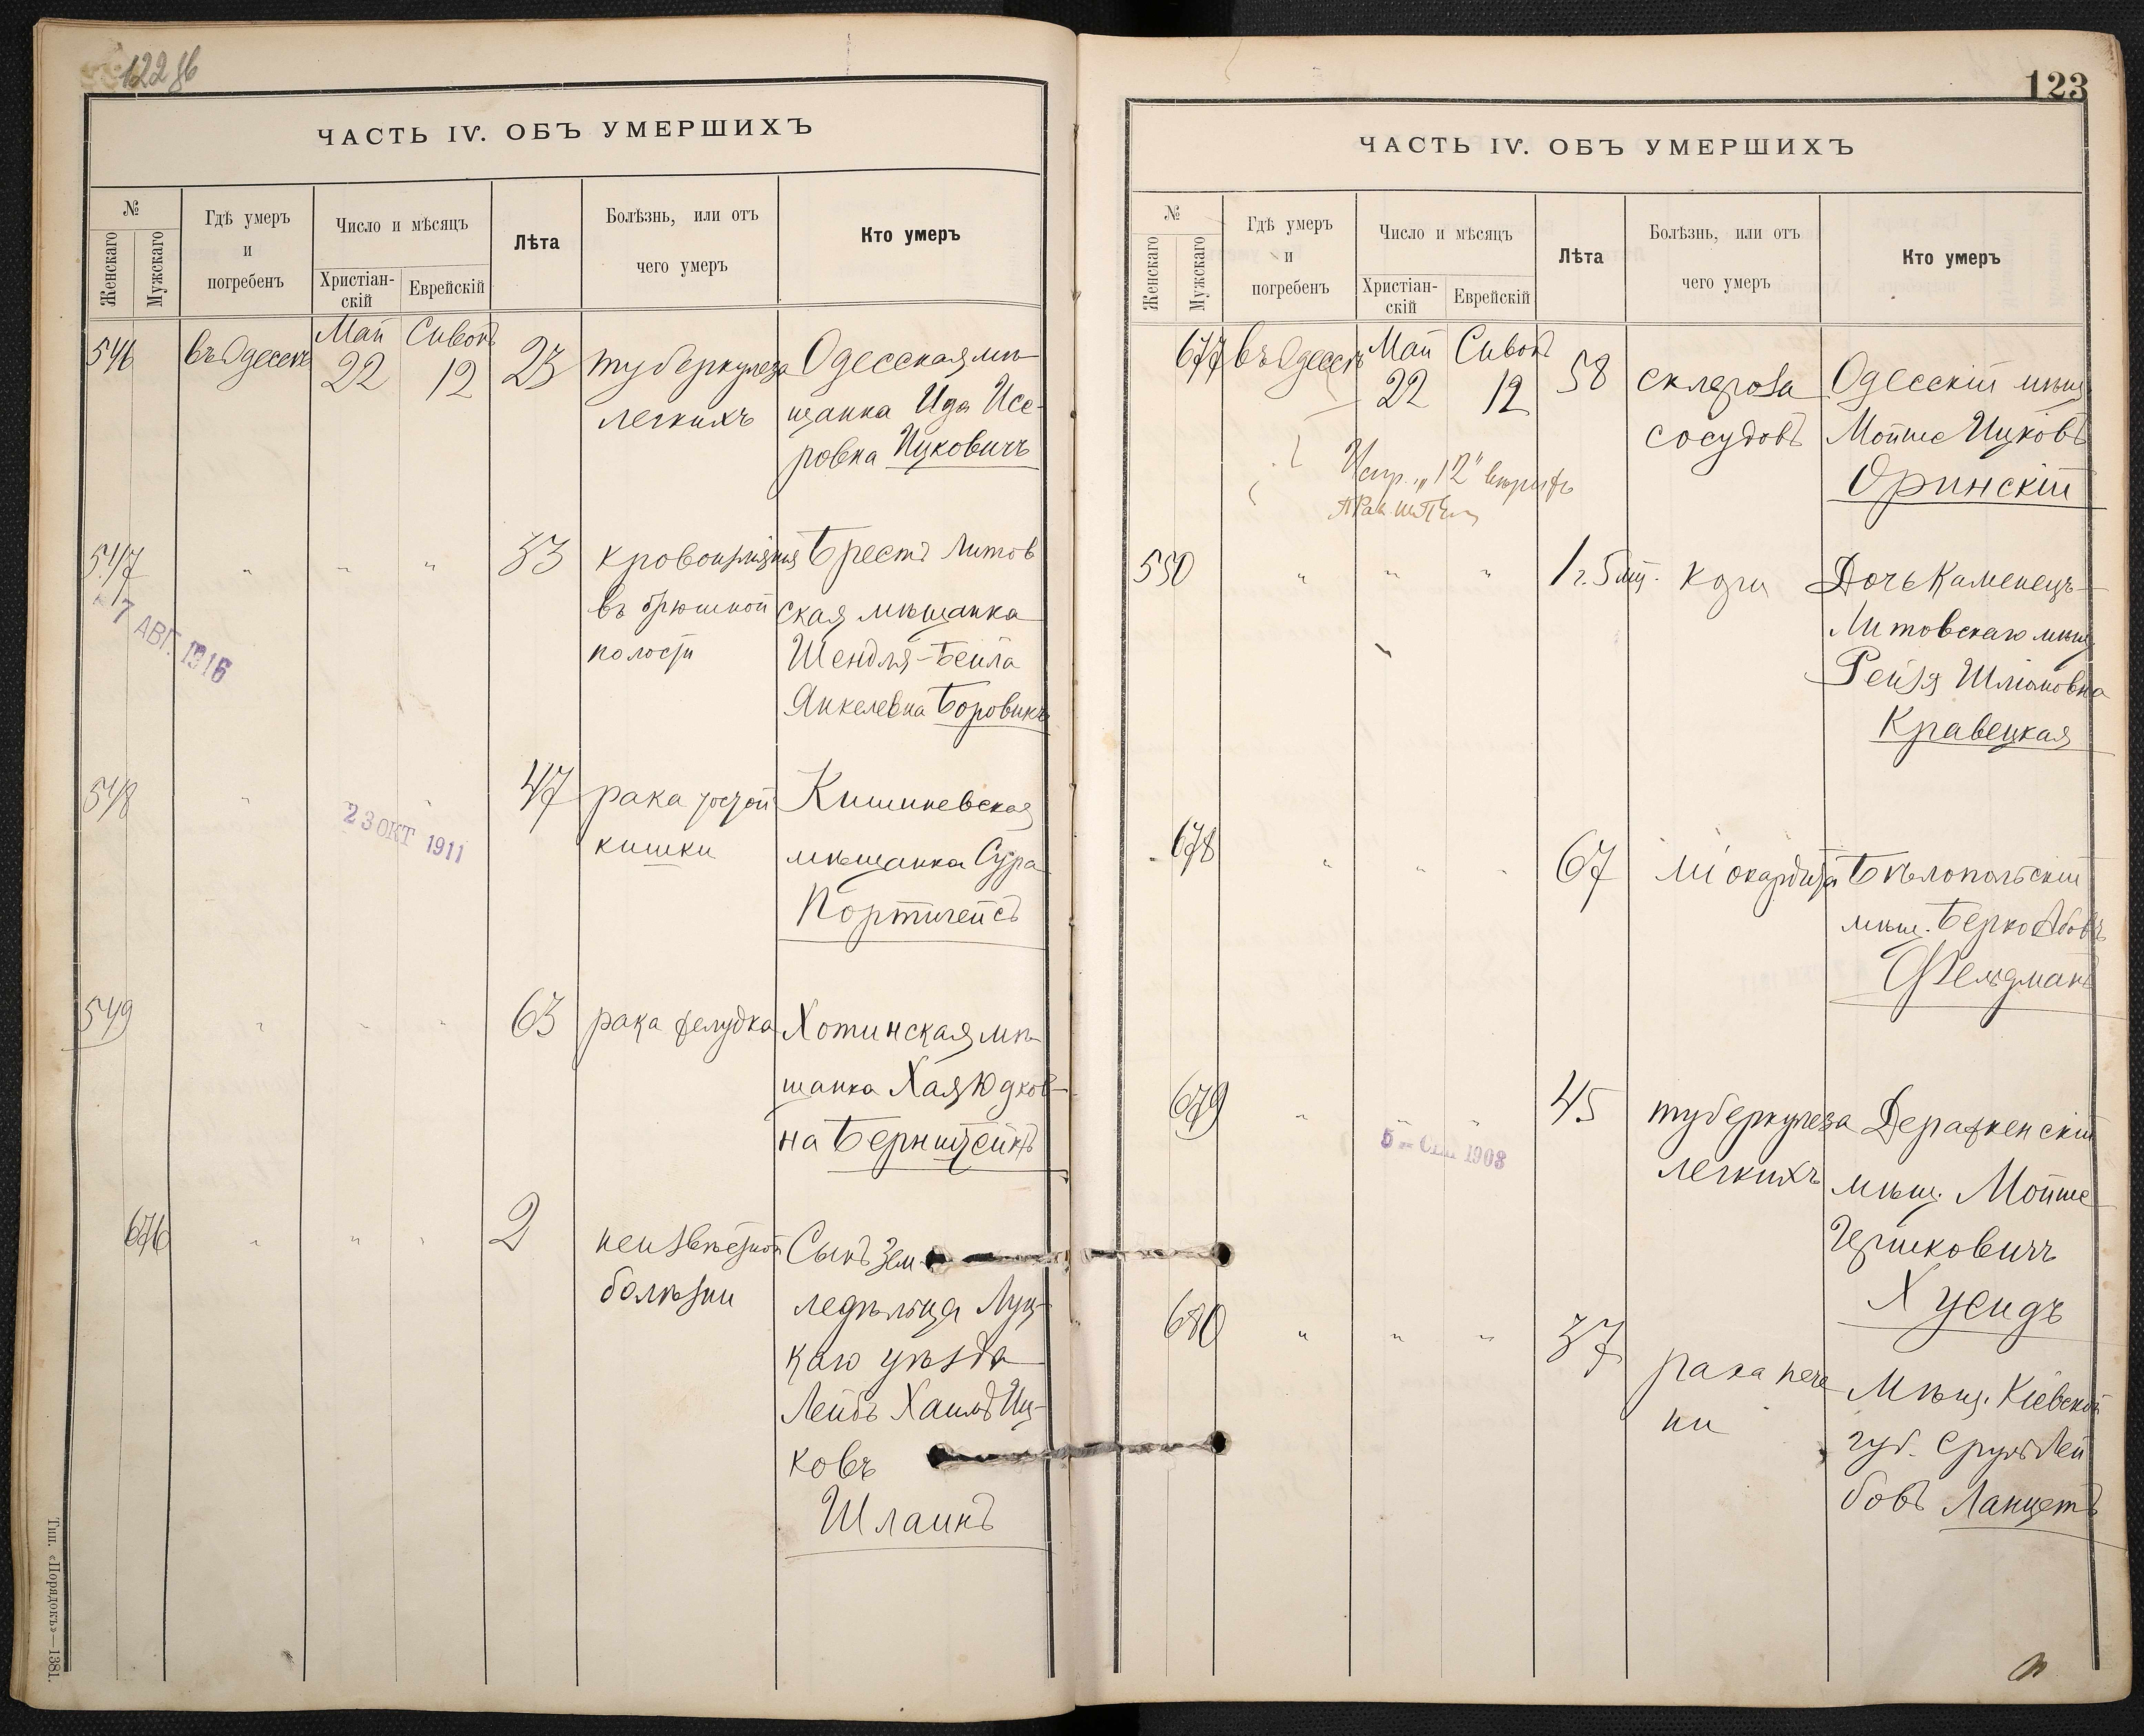 122 об
ЧАСТЬ IV. ОБЪ УМЕРШИХЪ
№
Женскаго
Мужскаго
Гдѣ умеръ
и
погребенъ
Число и мѣсяцъ
Христіан-
скій
Еврейскій
Лѣта
Болѣзнь, или отъ
чего умеръ
Кто умеръ
546 въ Одессѣ Май Сивонъ 23 туберкулеза Одесская мѣ-
22 12 легкихъ щанка Ида Исе-
ровна Ицковичъ
547 " " " 33 кровоизліянія Брестъ Литов
въ брюшной ская мѣщанка
полости Шендля-Бейла
Янкелевна Боровикъ
7 АВГ. 1916
548 " " 47 рака толстой Кишиневская
кишки мѣщанка Сура
Портнгейсъ
23 ОКТ 1911
549 " " " 63 рака желудка Хотинская мѣ-
щанка Хая Юдков-
на Бернштейнъ
676 " " " 2 неизвѣстной Сынъ Зем-
болѣзни ледѣльца Луц-
каго уѣзда
Лейбъ Хаимъ Иц-
ковъ
Шлаинъ
Тип. «Порядокъ»—1381.
123
ЧАСТЬ IV. ОБЪ УМЕРШИХЪ
№
Женскаго
Мужскаго
Гдѣ умеръ
и
погребенъ
Число и мѣсяцъ
Христіан-
скій
Еврейскій
Лѣта
Болѣзнь, или отъ
чего умеръ
Кто умеръ
677 въ Одессѣ Май Сивонъ 58 склероза Одесскій мѣщ
22 12 сосудовъ Мойше Ицковъ
Оринскій
Испр. „12" вѣрить
550 " " " 1 г. 5 мѣ. кори Дочь Каменецъ-
Литовскаго мѣщ
Рейзя Шліомовна
Кравецкая
678 " " " 67 міокардита Бѣлопольскій
мѣщ. Берко Абовъ
Фельдманъ
679 " " " 45 туберкулеза Деражненскій
легкихъ мѣщ. Мойше
Гершковичъ
Хусидъ
5 - СЕН 1908
680 " " " 37 рака пече
ни Мѣщ. Кіевской
губ. Сруль Лей
бовъ Ланцетъ